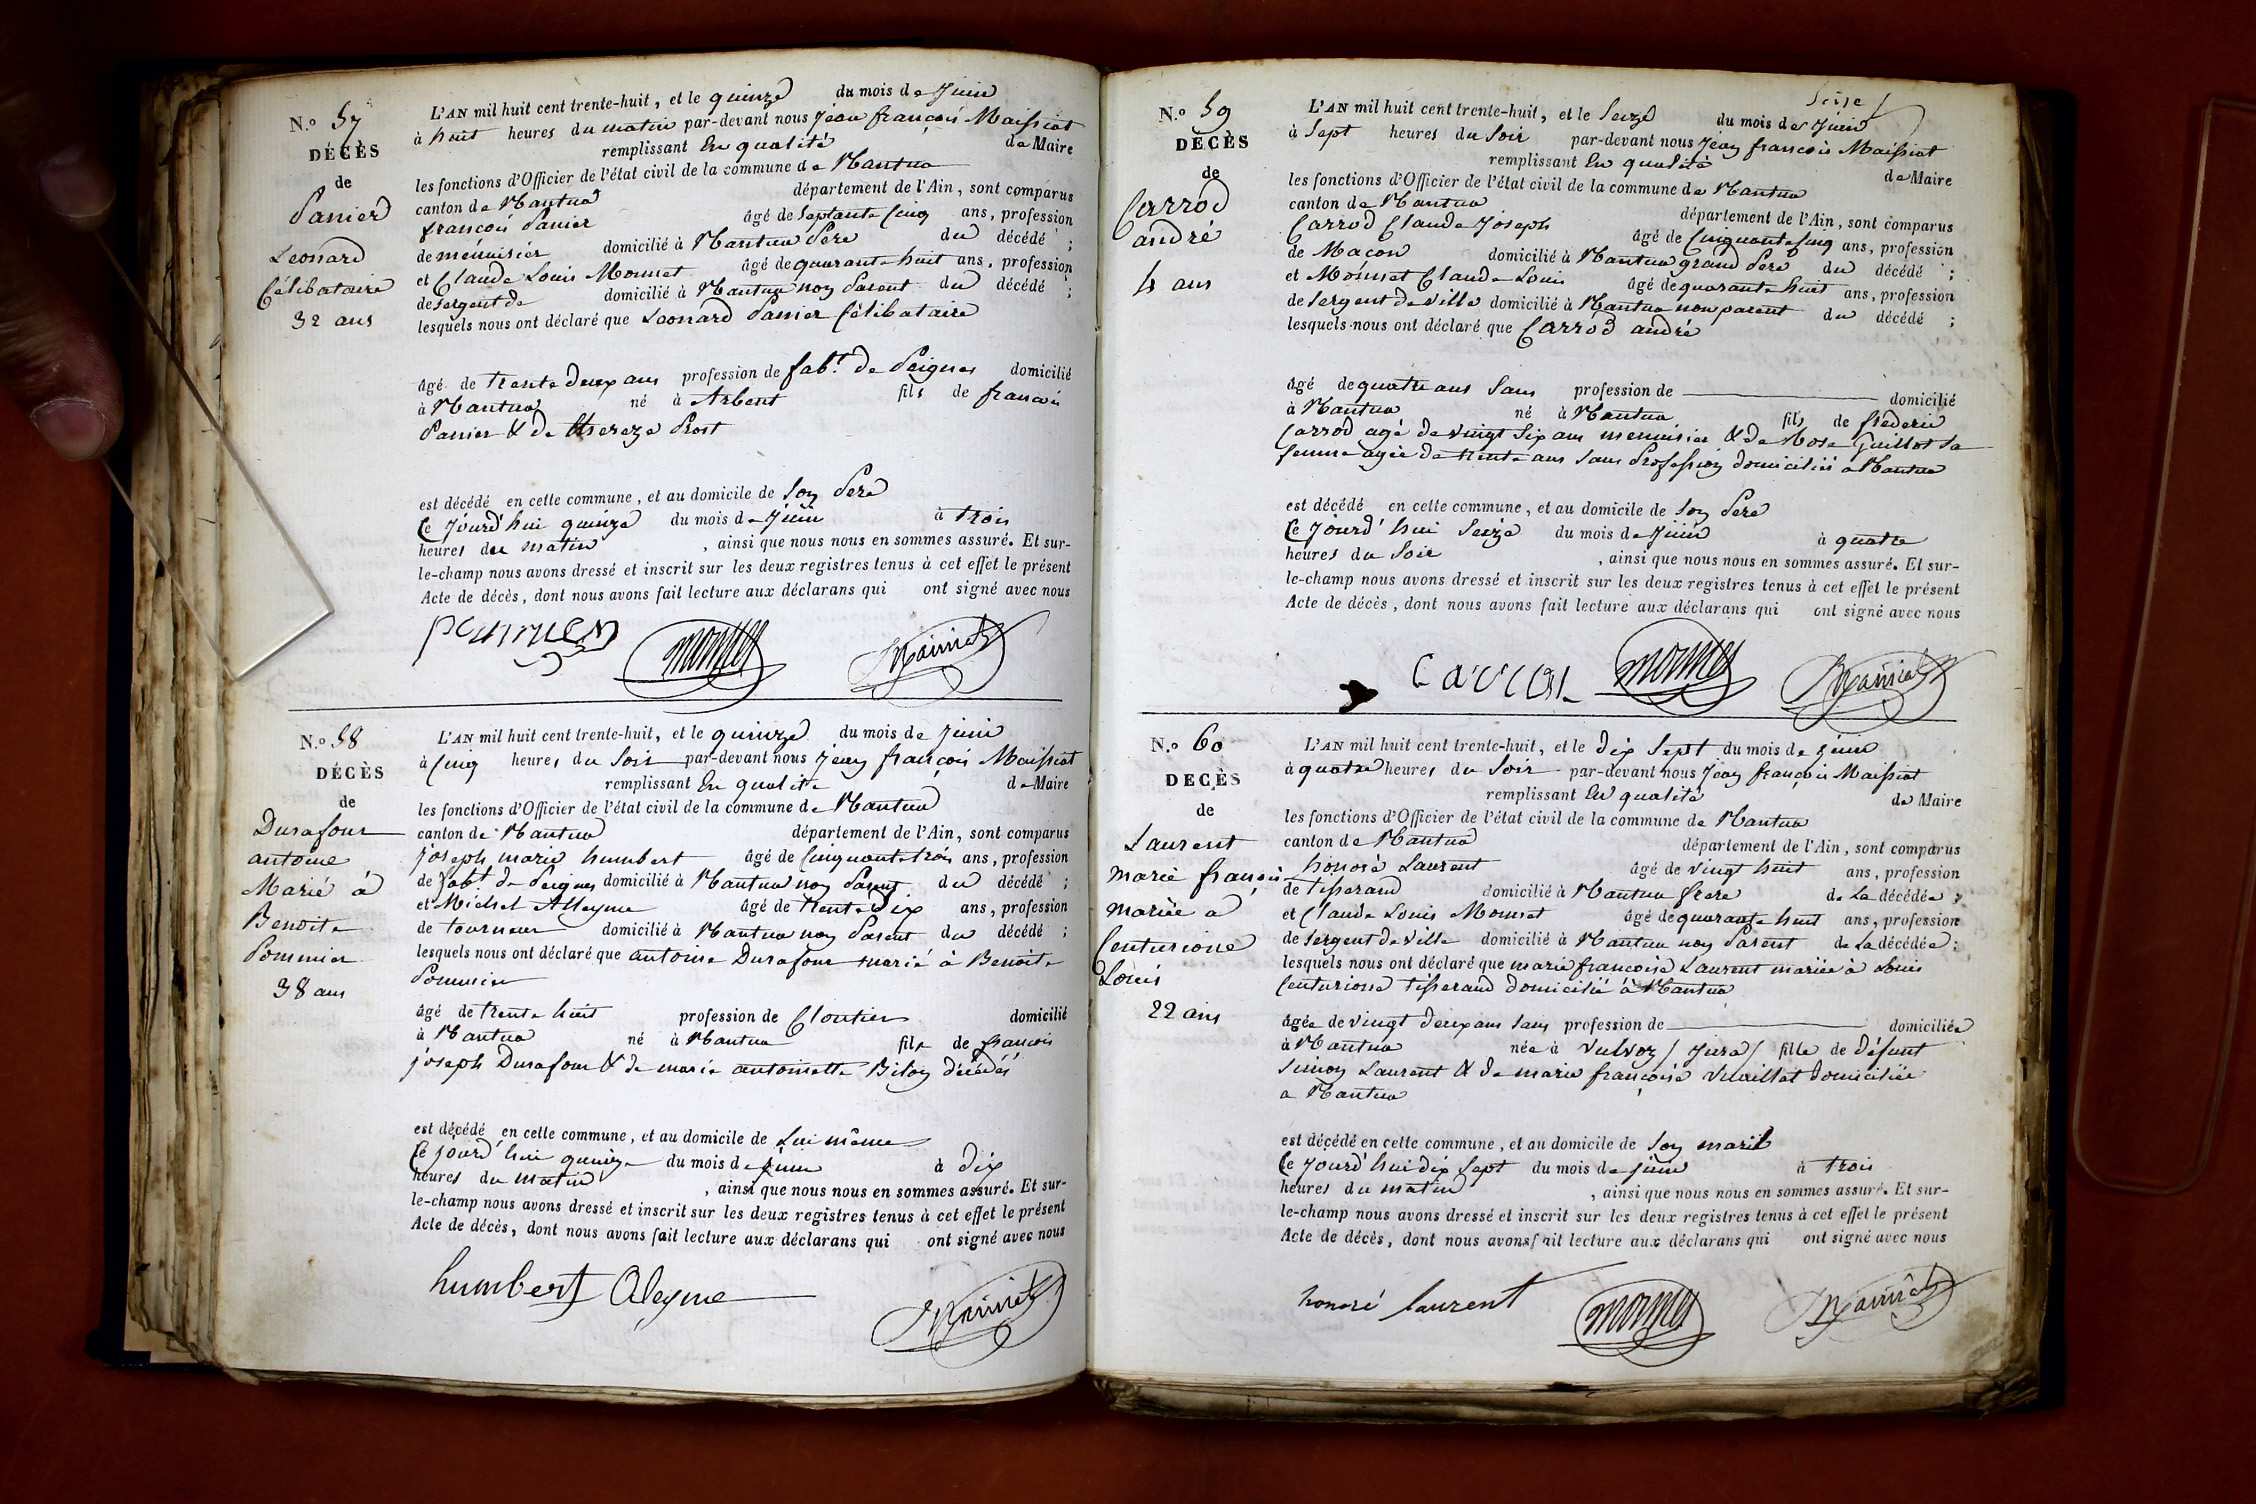 N.o 57
DÉCÈS
de
Panier
Leonard
Célibataire
32 ans
L'AN mil huit cent trente-huit, et le quinze du mois de Juin
à huit heures du matin par-devant nous Jean françois Maissiat
remplissant En qualité de Maire
les fonctions d'Officier de l'état civil de la commune de Nantua
canton de Nantua département de l'Ain, sont comparus
françois Panier âgé de septante cinq ans, profession
de menuisier domicilié à Nantua Pere du décédé ;
et Claude Louis Monnet âgé de quarante huit ans, profession
de sergent de domicilié à Nantua non Parent du décédé ;
lesquels nous ont déclaré que Leonard Panier Célibataire
âgé de trente deux ans profession de fabt. de Peignes domicilié
à Nantua né à Arbent fils de françois
Panier & de thereze Prost
est décédé en cette commune, et au domicile de son Pere
Ce Jourd'hui quinze du mois de Juin à trois
heures du matin , ainsi que nous nous en sommes assuré. Et sur-
le-champ nous avons dressé et inscrit sur les deux registres tenus à cet effet le présent
Acte de décès, dont nous avons fait lecture aux déclarans qui ont signé avec nous
monnet Maissiat
N.o 58
DÉCÈS
de
Durafour
antoine
Marié à
Benoite
Pommier
38 ans
L'AN mil huit cent trente-huit, et le quinze du mois de Juin
à cinq heures du soir par-devant nous Jean françois Maissiat
remplissant En qualité de Maire
les fonctions d'Officier de l'état civil de la commune de Nantua
canton de Nantua département de l'Ain, sont comparus
joseph marie humbert âgé de Cinquante trois ans, profession
de fabt. de Peignes domicilié à Nantua non Parent du décédé ;
et Michel Alleyme âgé de trente dix ans, profession
de tourneur domicilié à Nantua non Parent du décédé ;
lesquels nous ont déclaré que antoine Durafour marié à Benoite
Pommier
âgé de trente huit profession de Cloutier domicilié
à Nantua né à Nantua fils de françois
joseph Durafour & de marie antoinette Biloz décédés
est décédé en cette commune, et au domicile de Lui même
Ce jourd'hui quinze du mois de Juin à dix
heures du matin , ainsi que nous nous en sommes assuré. Et sur-
le-champ nous avons dressé et inscrit sur les deux registres tenus à cet effet le présent
Acte de décès, dont nous avons fait lecture aux déclarans qui ont signé avec nous
humbert Aleyme Maissiat
N.o 59
DÉCÈS
de
Carrod
andré
4 ans
L'AN mil huit cent trente-huit, et le Seize du mois de Juin
à sept heures du soir par-devant nous Jean françois Maissiat
remplissant En qualité de Maire
les fonctions d'Officier de l'état civil de la commune de Nantua
canton de Nantua département de l'Ain, sont comparus
Carrod Claude Joseph âgé de Cinquante cinq ans, profession
de Maçon domicilié à Nantua grand Pere du décédé ;
et Monnet Claude Louis âgé de quarante huit ans, profession
de Sergent de ville domicilié à Nantua non parent du décédé ;
lesquels nous ont déclaré que Carrod andré
âgé de quatre ans Sans profession de domicilié
à Nantua né à Nantua fils de frederic
Carrod agé de vingt six ans menuisier & de Rose Guillot sa
femme agée de trente ans sans Profession domiciliés a Nantua
est décédé en cette commune, et au domicile de son Pere
Ce Jourd'hui Seize du mois de Juin à quatre
heures du soir , ainsi que nous nous en sommes assuré. Et sur-
le-champ nous avons dressé et inscrit sur les deux registres tenus à cet effet le présent
Acte de décès, dont nous avons fait lecture aux déclarans qui ont signé avec nous
monnet Maissiat
N.o 60
DÉCÈS
de
Laurent
marie françoise
mariée a
Centurione
Louis
22 ans
L'AN mil huit cent trente-huit, et le dix sept du mois de Juin
à quatre heures du soir par-devant nous Jean françois Maissiat
remplissant En qualité de Maire
les fonctions d'Officier de l'état civil de la commune de Nantua
canton de Nantua département de l'Ain, sont comparus
honoré Laurent âgé de vingt huit ans, profession
de tisserand domicilié à Nantua frere de La décédée ;
et Claude Louis Monnet âgé de quarante huit ans, profession
de Sergent de ville domicilié à Nantua non Parent de La décédée ;
lesquels nous ont déclaré que marie françoise Laurent mariée à Louis
Centurione tisserand domicilié à Nantua
âgée de vingt deux ans sans profession de domiciliée
à Nantua née à Vulvoz / Jura / fille de défunt
Simon Laurent & de marie françoise Vuaillat domiciliée
a Nantua
est décédé en cette commune, et au domicile de son marit
Ce Jourd'hui dix sept du mois de Juin à trois
heures du matin , ainsi que nous nous en sommes assuré. Et sur-
le-champ nous avons dressé et inscrit sur les deux registres tenus à cet effet le présent
Acte de décès, dont nous avons fait lecture aux déclarans qui ont signé avec nous
honoré laurent monnet Maissiat